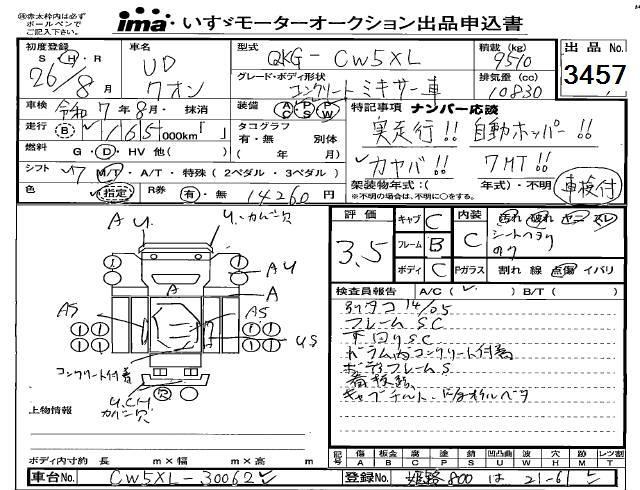 ㊟赤太枠内は必ず
ボールペンで
ご記入下さい。
ima いすゞモーターオークション出品申込書
初度登録
S・H・R
26年
8月
車名
UD
クオン
型式
QKG-CW5XL
グレード・ボディ形状
コンクリートミキサー車
積載(kg)
9510
排気量(cc)
10830
出品No.
3457
車検 令和7年8月・抹消
装備 AC PS PW
特記事項 ナンバー応談
走行 B 165,000km「 」
タコグラフ
有・無 別体
( 年 月)
実走行!! 自動ホッパー!!
燃料 G・D・HV 他( )
カヤバ!! 7MT!!
シフト 7 M/T・A/T・特殊(2ペダル・3ペダル)
架装物年式:( 年式)・不明
※不明の場合は、不明に○をする。
車検付
色 指定 R券 有・無 14260円
評価
3.5
キャブ C
フレーム B
ボディ C
内装
C
Pガラス
汚れ 破れ ヤニ スレ
シートヘタリ
割れ 線 点傷 イバリ
A U
U.カバー穴
A U
A
A
AS
AS
US
コンクリート付着
U.CH
カバー穴
検査員報告 A/C( ) B/T( )
14/05
フレームSC
下回りSC
ドラム内コンクリート付着
ボディフレームS
上物情報
ボディ内寸約 長 m×幅 m×高 m
記号 傷A 板金B 腐C 塗P 錆S 凹凸曲U 波W 穴H 跡M レンズ割T
車台No. CW5XL-30062
登録No. 姫路800 は 21-61